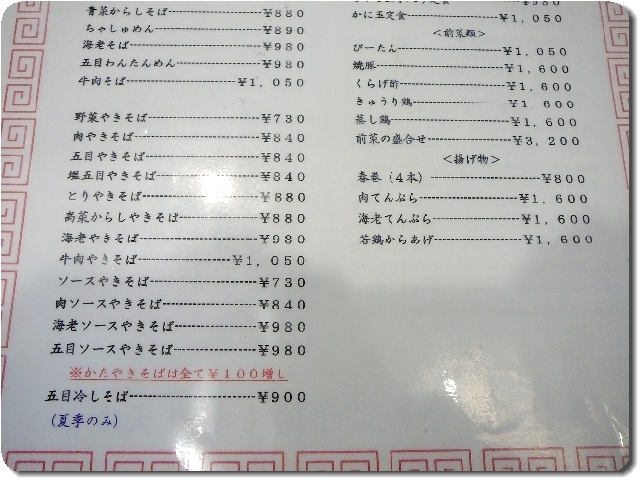 青菜からしそば ¥880
ちゃしゅめん ¥890
海老そば ¥980
五目わんたんめん ¥980
牛肉そば ¥1,050
野菜やきそば ¥730
肉やきそば ¥840
五目やきそば ¥840
塩五目やきそば ¥840
とりやきそば ¥880
高菜からしやきそば ¥880
海老やきそば ¥980
牛肉やきそば ¥1,050
ソースやきそば ¥730
肉ソースやきそば ¥840
海老ソースやきそば ¥980
五目ソースやきそば ¥980
※かたやきそばは全て¥100増し
五目冷しそば ¥900
(夏季のみ)
かに玉定食 ¥1,050
<前菜類>
ぴーたん ¥1,050
焼豚 ¥1,600
くらげ酢 ¥1,600
きゅうり鶏 ¥1,600
蒸し鶏 ¥1,600
前菜の盛合せ ¥3,200
<揚げ物>
春巻(4本) ¥800
肉てんぷら ¥1,600
海老てんぷら ¥1,600
若鶏からあげ ¥1,600